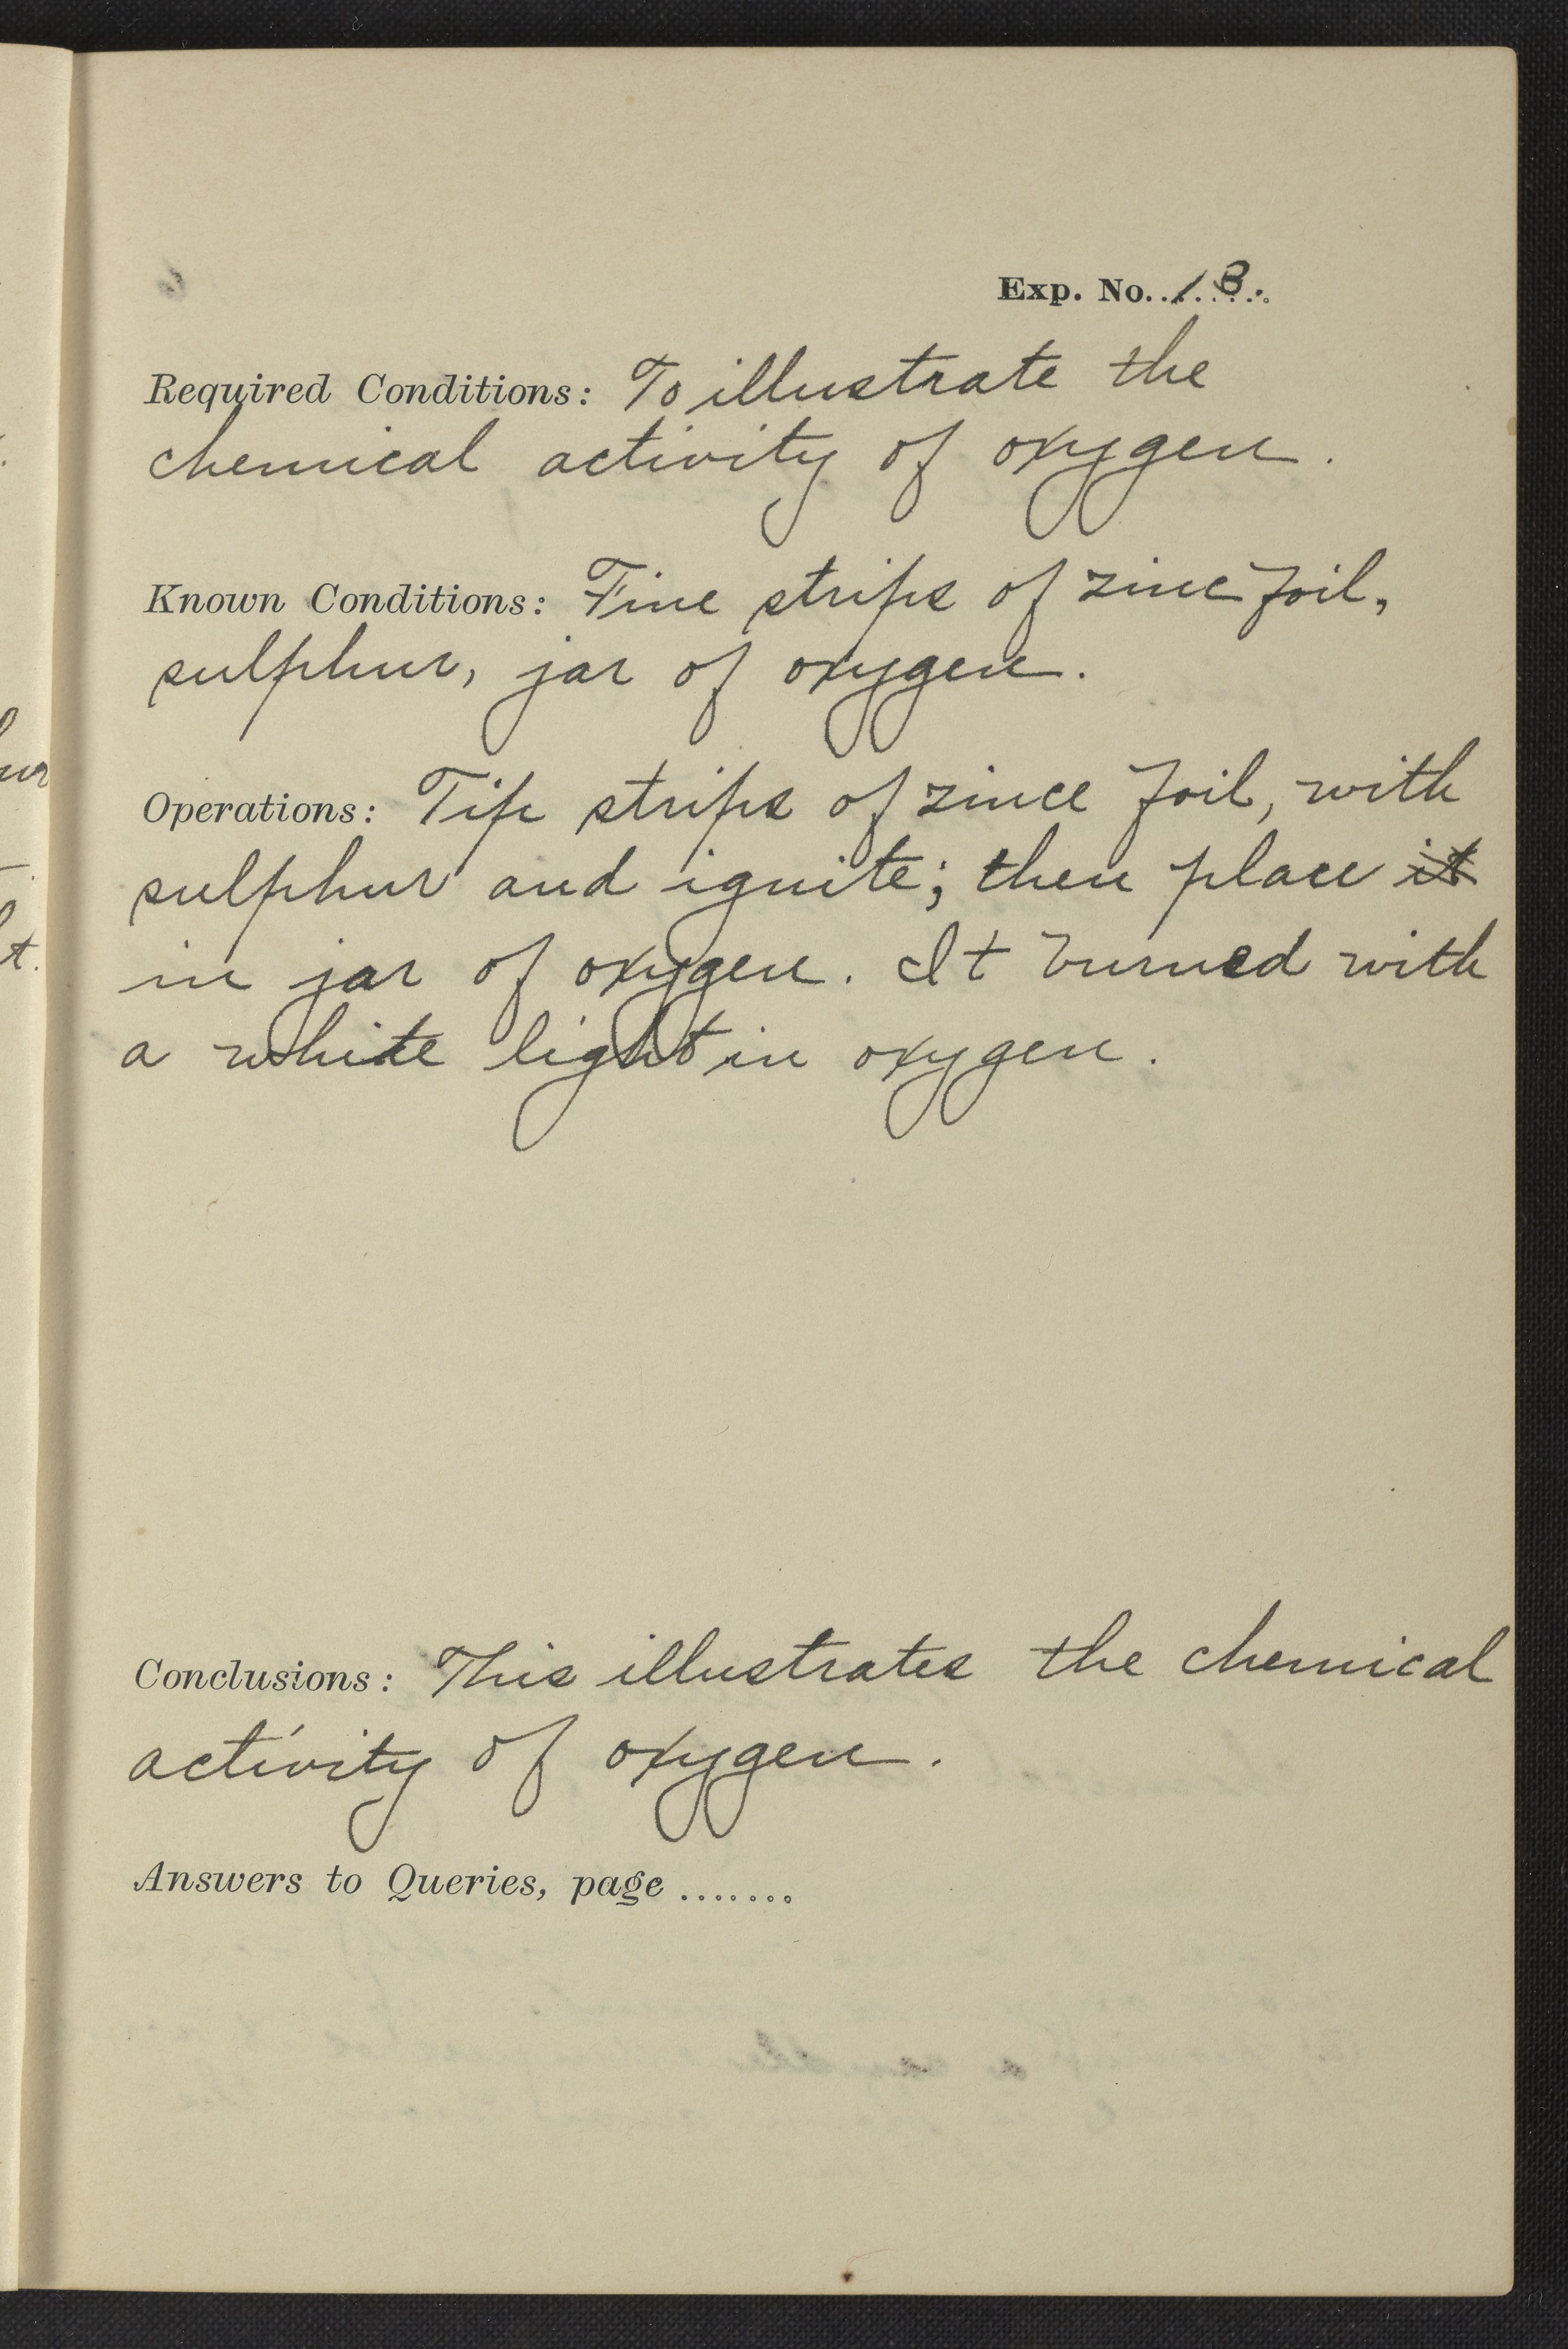 Exp. No. 13.
Required Conditions: To illustrate the
chemical activity of oxygen.
Known Conditions: Fine strips of zinc foil,
sulphur, jar of oxygen.
Operations: Tip strips of zince foil, with
sulphur and ignite; then place it
in jar of oxygen. It burned with
a white light in oxygen.
Conclusions: This illustrates the chemical
activity of oxygen.
Answers to Queries, page .......